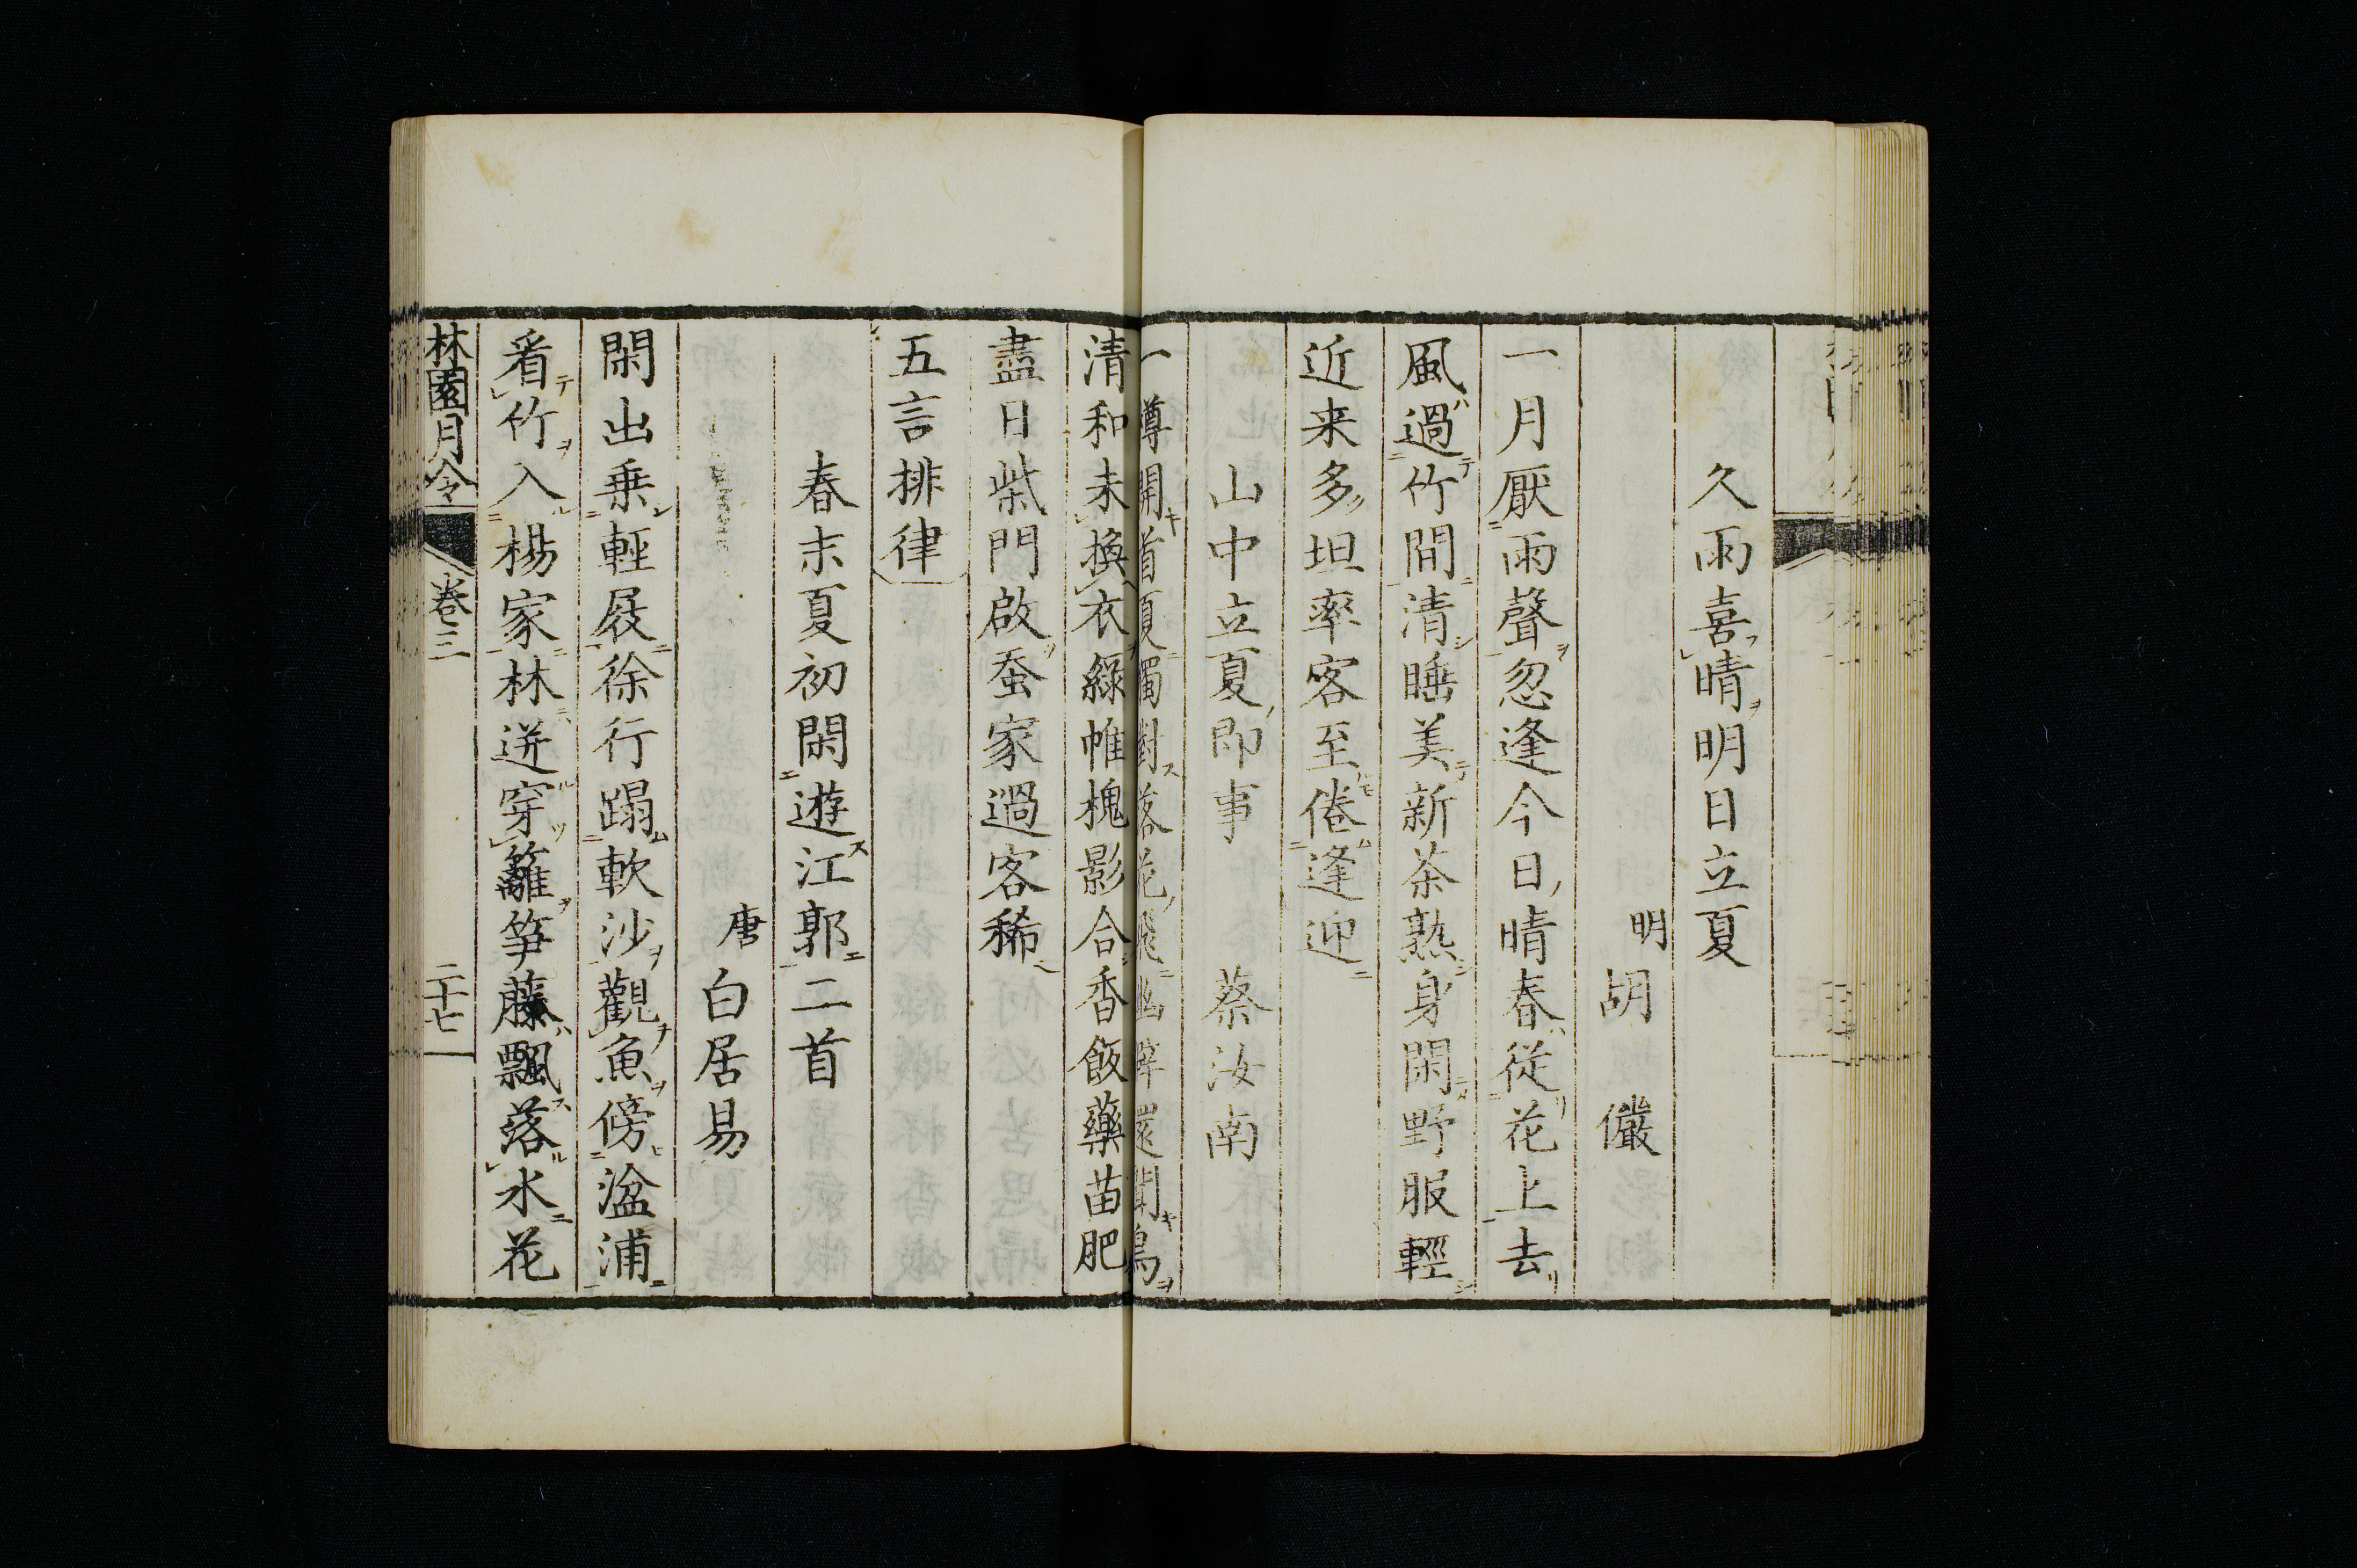 久雨喜晴明日立夏
明胡儼
一月厭雨聲忽逢今日晴春從花上去
風過竹間清睡美新茶熟身閑野服輕
近来多坦率客至倦逢迎
山中立夏即事 蔡汝南
一樽開首夏獨對落花飛幽僻還聞鳥
清和未換衣綠帷槐影合香飯藥苗肥
盡日柴門啟蚕家過客稀
五言排律
春末夏初閑遊江郭二首
唐白居易
閑出乗輕屐徐行蹋軟沙觀魚傍湓浦
看竹入楊家林迸穿籬笋藤飄落水花
林園月令 卷三 二十七